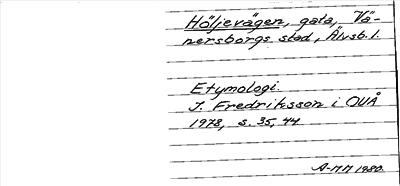 Höljevägen, gata, Vä-
nersborgs stad, Älvsb. l.
Etymologi.
I. Fredriksson i OUÅ
1978, s. 35, 44
A-MM 1980.